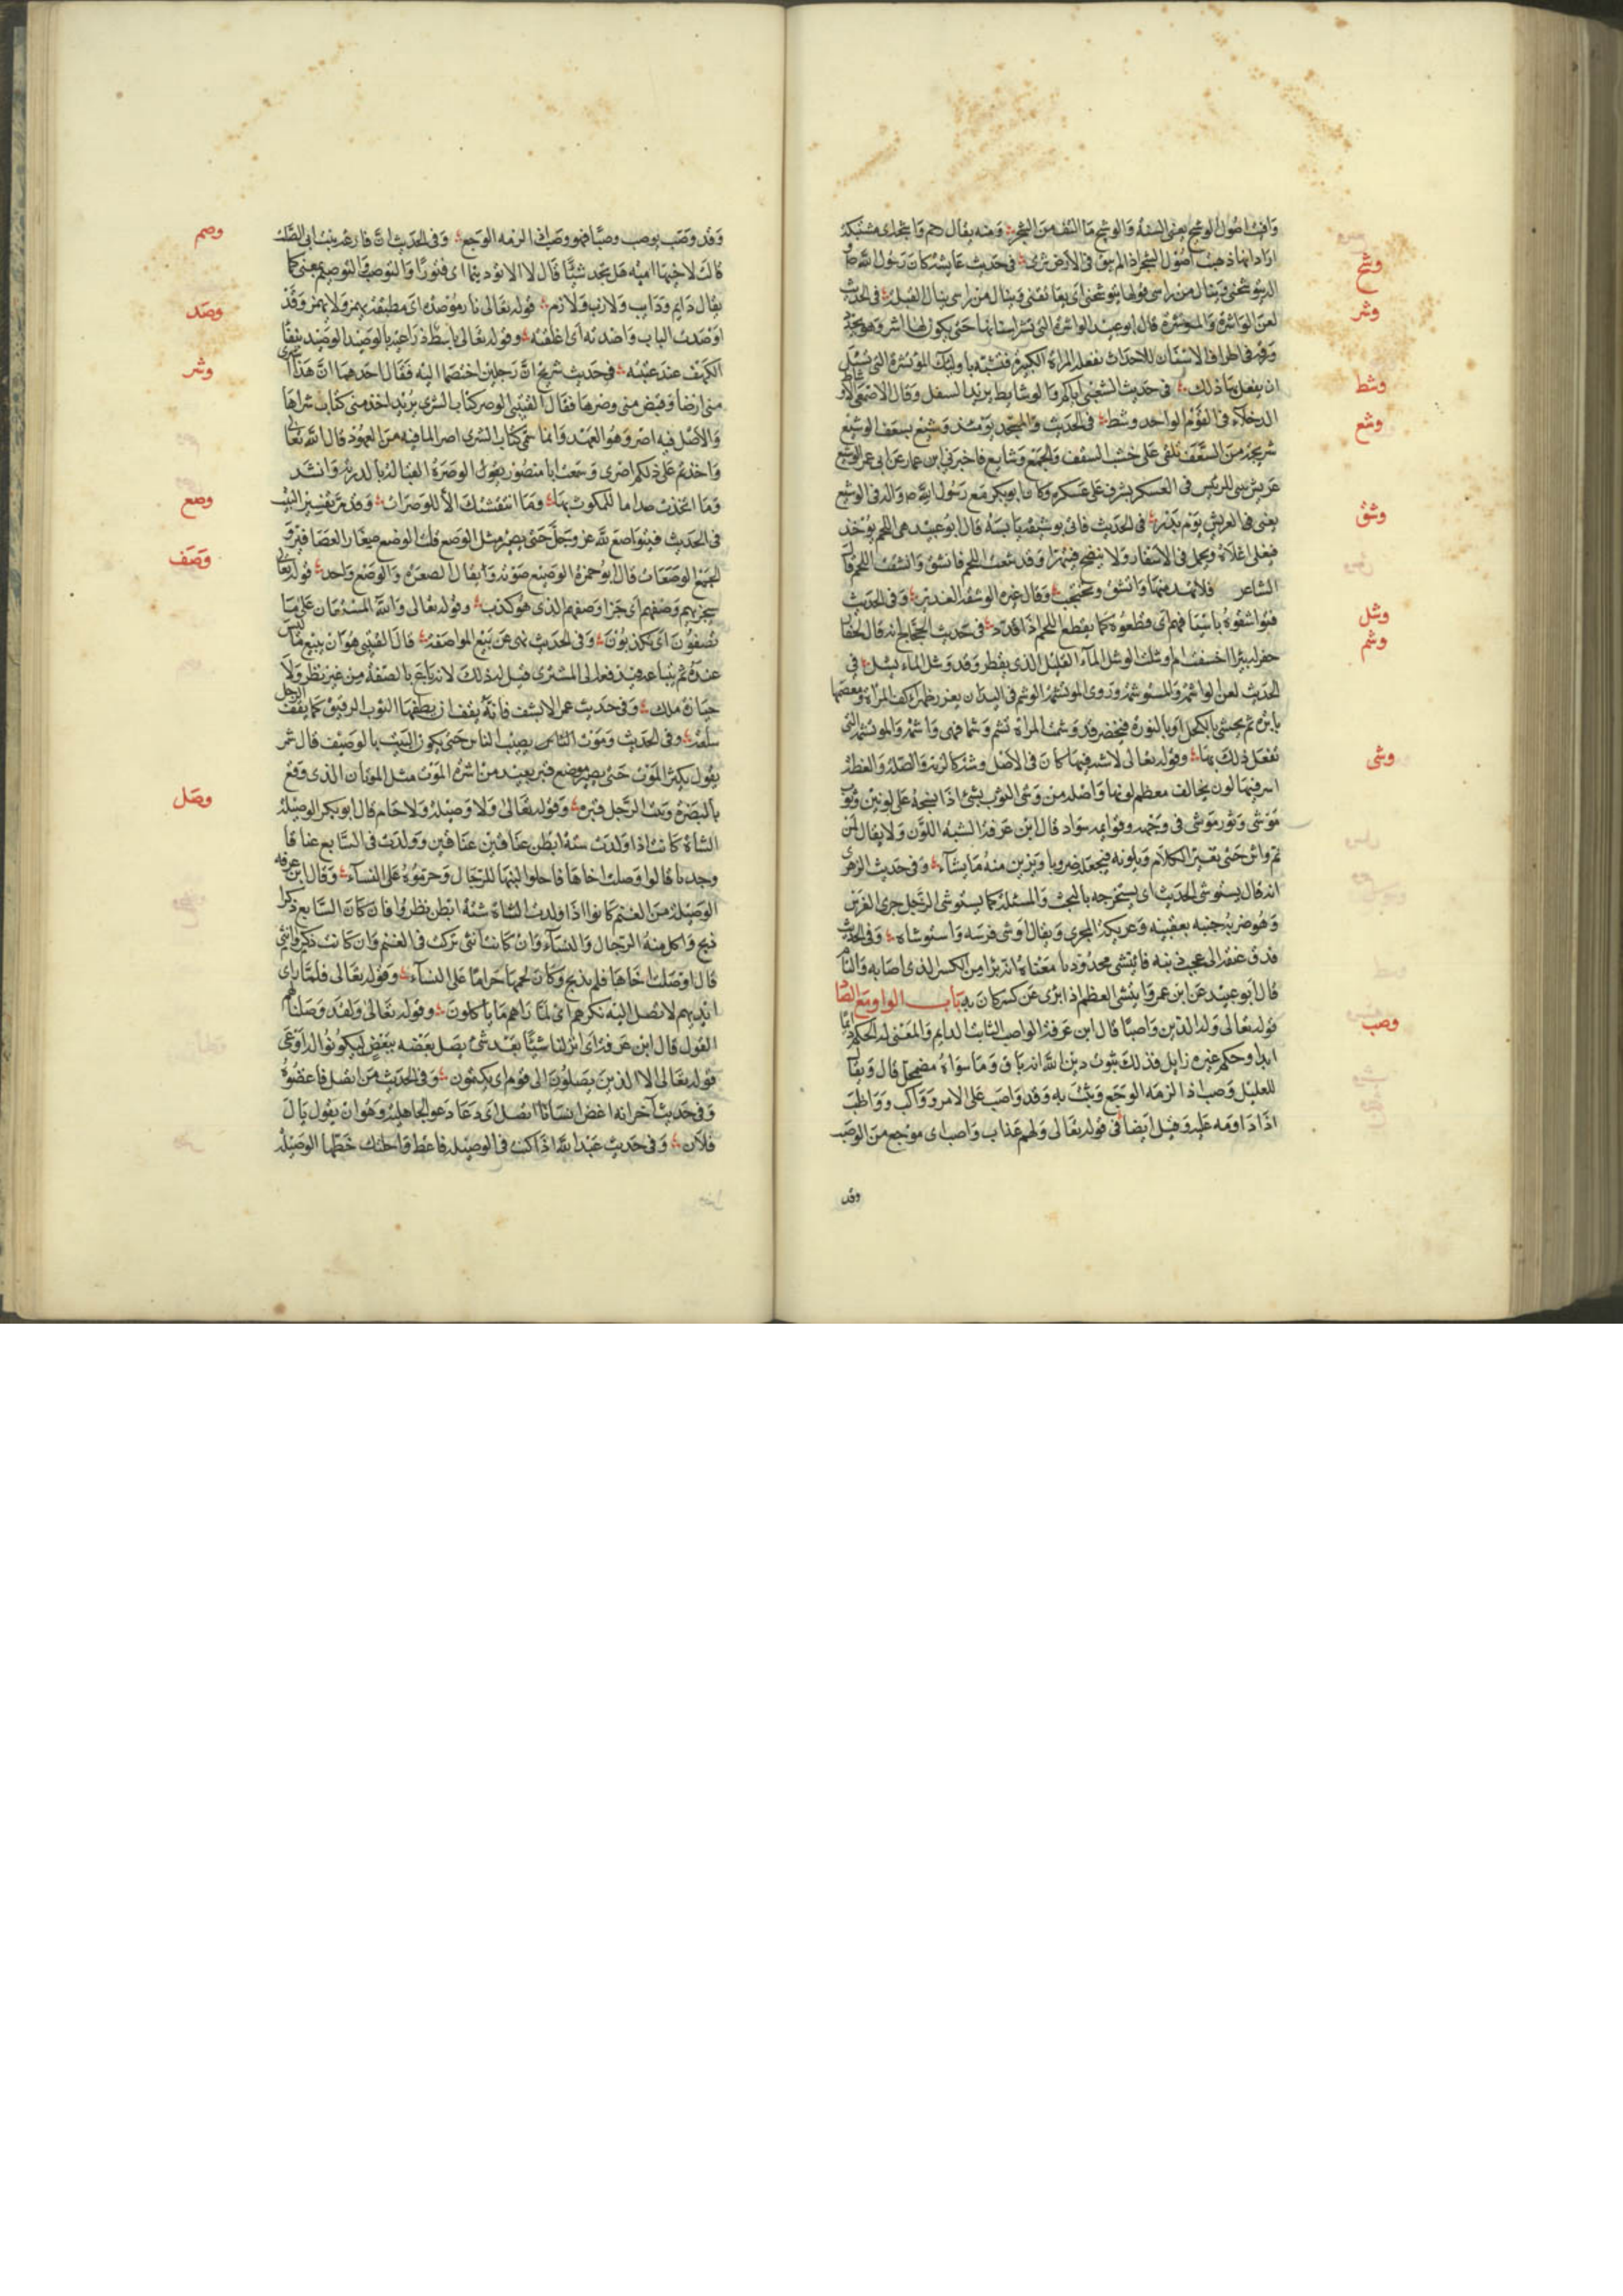 وافنت اصول الوشيج يعني السنة والوشيج ما التف من الشجر ومنه يقال رحم واشجة اي مشتبكة
اراد انها ذهبت اصول الشجر اذ لم يبق في الارض ثرى في حديث عايشة كان رسول الله ص
وشح
يتوشحني وينال من راسي قولها يتوشحني اي يعانقني وينال من راسي ينال القبلة في الحديث
وشر
لعن الواشرة والموتشرة قال ابو عبيد الواشرة التي تشر اسنانها حتى يكون لها اشر وهو تحدد
ورقة في اطراف الاسنان للاحداث تفعله المراة الكبيرة تتشبه باوليك الموتشرة التي تسئل
ان يفعل بها ذلك في حديث الشعبي اياكم والوشايظ يريد السفل وقال الاصمعي
وشظ
الدخلاء في القوم الواحد وشيظ في الحديث والمسجد يومئذ وشيع بسعف الوشيع
وشع
شريجة من السعف تلقى على خشب السقف والجمع وشايع فاخبرني ابن عمار عن ابي عمر الوشيع
عريش يبنى للرئيس في العسكر يشرف على عسكره وكان ابو بكر مع رسول الله ص واله في الوشيع
يعني في العريش يوم بدر في الحديث فاتي بوشيقة يابسة قال ابو عبيد هي اللحم يؤخذ
وشق
فيغلى اغلاة ويحمل في الاسفار ولا ينضج فيتهرا وقد وشقت اللحم فاتشق
الشاعر فلا تهد منها واتشق وتجبجب وقال غيره الوشيقة القديد وفي الحديث
فتواشقوه باسيافهم اي قطعوه كما يقطع اللحم اذا قدد في حديث الحجاج انه قال لحفار
وشل
حفر له بيرا اخسفت ام اوشلت الوشل المآء القليل الذي يقطر وقد وشل الماء يشل في
وشم
الحديث لعن الواشمة والمستوشمة وروى الموتشمة الوشم في اليد ان يغرز ظهر كف المراة ومعصمها
بابرة ثم يحشى بالكحل او بالنورة فيخضر وقد وشمت المراة تشم وشما فهي واشمة والموتشمة التي
تفعل ذلك بها وقوله تعالى لاشية فيها كان في الاصل وشية كالزنة والصلة والعظة
وشى
اي ليس فيها لون يخالف معظم لونها واصله من وشى الثوب يشي اذا نسجه على لونين وثور
موشى وثور موشى في وجهه وقوايمه سواد قال ابن عرفة الشية اللون ولا يقال لمن
نم واش حتى يغير الكلام ويلونه فيجعله ضروبا ويزين منه ما يشآء وفي حديث الزهري
انه قال يستوشي الحديث اي يستخرجه بالبحث والمسئلة كما يستوشي الرجل جري الفرس
وهو ضربه جنبه بعقبيه وتحريكه ليجري ويقال اوشى فرسه واستوشاه وفي الحديث
فدق عنقه الى عجب ذنبه فائتشى محدودبا معناه انه برا من الكسر الذي اصابه والتام
قال ابو عبيد عن ابن عمرو ايتشى العظم اذا برى عن كسر كان به باب الواو مع الصاد
قوله تعالى وله الدين واصبا قال ابن عرفة الواصب الثابت الدايم والمعنى له الحكم دايما
وصب
ابدا وحكم غيره زايل فذلك ثبوت دين الله انه باق وما سواه مضمحل قال ويقال
للعليل وصب اذا لزمه الوجع وثبت به وقد واصب على الامر وواكب وواظب
اذا داومه عليه وقيل ايضا في قوله تعالى ولهم عذاب واصب اي موجع من الوصب
وقد
وقد وصب يوصب وصبا فهو وصب اذا لزمه الوجع وفي الحديث ان فارعة بنت ابي الصلت
وصم
قالت لاخيها امية هل تجد شيئا قال لا الا توصيبا اي فتورا والتوصيب والتوصيم بمعنى كما
يقال دايم ودايب ولازب ولازم قوله تعالى نار موصدة اي مطبقة يهمز ولا يهمز وقد
وصد
اوصدت الباب واصدته اي اغلقته وقوله تعالى باسط ذراعيه بالوصيد الوصيد بفناء
الكهف عند عتبته في حديث شريح ان رجلين اختصما اليه فقال احدهما ان هذا اشترى
وشر
مني ارضا وقبض مني وصرها فقال القتيبي الوصر كتاب الشرى يريد اخذ مني كتاب شراها
والاصل فيه اصر وهو العهد وانما سمى كتاب الشرى اصرا لما فيه من العهود قال الله تعالى
واخذتم على ذلكم اصرى وسمعت ابا منصور يقول الوصرة القبالة بالدرية وانشد
وما اتخذت صداما للمكوث بها وما انتقشتك الا للوصرات وقد مر تفسير البيت
في الحديث فيتواضع لله عز وجل حتى يصير مثل الوصع قلت الوصع صغار العصافير و
وصع
الجمع الوصعان قال ابو حمزة الوصيع صوته وانما يقال الصعوة والوصع واحد قوله تعالى
وصف
سيجزيهم وصفهم اي جزا وصفهم الذي هو كذب وقوله تعالى والله المستعان على ما
تصفون اي تكذبون وفي الحديث نهى عن بيع المواصفة قال القتيبي هو ان يبيع ما ليس
عنده ثم يبتاعه فيدفعه الى المشتري قيل له ذلك لانه باع بالصفة من غير نظر ولا
حيازة ملك وفي حديث عمر الا يشف فانه يصف اي يصفها الثوب الرقيق كما يصف الرجل
سلعته وفي الحديث وموت الناس يصيب الناس حتى يكون البيت بالوصيف قال شمر
يقول يكثر الموت حتى يصير موضع قبر بعبد من كثرة الموت مثل الموتان الذي وقع
بالبصرة وبيت الرجل قبره وقوله تعالى ولا وصيلة ولا حام قال ابو بكر الوصيلة
وصل
الشاة كانت اذا ولدت ستة ابطن عناقين عناقين وولدت في السابع عناقا
وجديا قالوا وصلت اخاها فاحلوا لبنها للرجال وحرموه على النساء وقال ابن عرفة
الوصيلة من الغنم كانوا اذا ولدت الشاة ستة ابطن نظروا فان كان السابع ذكرا
ذبح واكل منه الرجال والنساء وان كانت انثى تركت في الغنم وان كانت ذكر وانثى
قالوا وصلت اخاها فلم يذبح وكان لحمها حراما على النساء وقوله تعالى فلما راى
ايديهم لا تصل اليه نكرهم اي لما راهم ما ياكلون وقوله تعالى ولقد وصلنا لهم
القول قال ابن عرفة اي انزلنا شيئا بعد شئ يصل بعضه ببعض ليكونوا له اوعى
قوله تعالى الا الذين يصلون الى قوم اي ينتمون وفي الحديث من اتصل فاعضوه
وفي حديث آخر انه اعض انسانا اتصل اي دعا دعوى الجاهلية وهو ان يقول يال
فلان وفي حديث عبد الله اذا كنت في الوصيلة فاعط راحلتك حظها الوصيلة